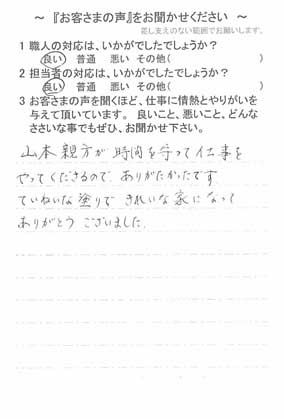 ～ 『お客さまの声』をお聞かせください ～
差し支えのない範囲でお願いします。
1 職人の対応は、いかがでしたでしょうか？
良い 普通 悪い その他( )
2 担当者の対応は、いかがでしたでしょうか？
良い 普通 悪い その他( )
3 お客さまの声を聞くほど、仕事に情熱とやりがいを
与えて頂いています。 良いこと、悪いこと、どんな
ささいな事でもぜひ、お聞かせ下さい。
山本親方が時間を守って仕事を
やってくださるので、ありがたかったです
ていねいな塗りで きれいな家になって
ありがとう ございました。